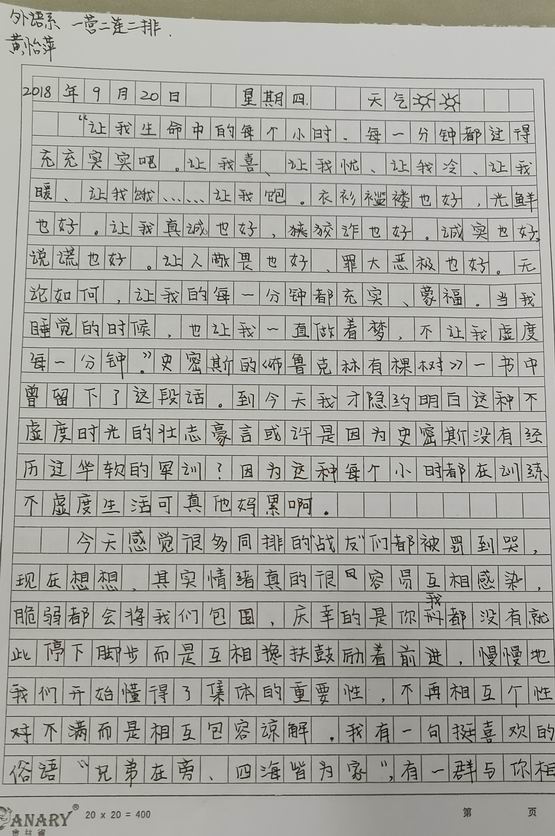 外语系 一营二连二排.
黄怡萍
2018年9月20日 星期四. 天气
“让我生命中的每个小时、每一分钟都过得
充充实实吧。让我喜、让我忧、让我冷、让我
暖、让我饿……让我饱。衣衫褴褛也好,光鲜
也好。让我真诚也好,狡诈也好。诚实也好,
说谎也好。让人敬畏也好、罪大恶极也好。无
论如何,让我的每一分钟都充实、蒙福。当我
睡觉的时候,也让我一直做着梦,不让我虚度
每一分钟。”史密斯的《布鲁克林有棵树》一书中
曾留下了这段话。到今天我才隐约明白这种不
虚度时光的壮志豪言或许是因为史密斯没有经
历过华软的军训?因为这种每个小时都在训练
不虚度生活可真他妈累啊。
今天感觉很多同排的“战友”们都被罚到哭,
现在想想,其实情绪真的很容易互相感染,
脆弱都会将我们包围,庆幸的是你我都没有就
此停下脚步而是互相搀扶鼓励着前进,慢慢地
我们开始懂得了集体的重要性,不再相互个性
对不满而是相互包容谅解。我有一句挺喜欢的
俗语“兄弟在旁、四海皆为家”,有一群与你相
CANARY®
20 x 20 = 400
第 页